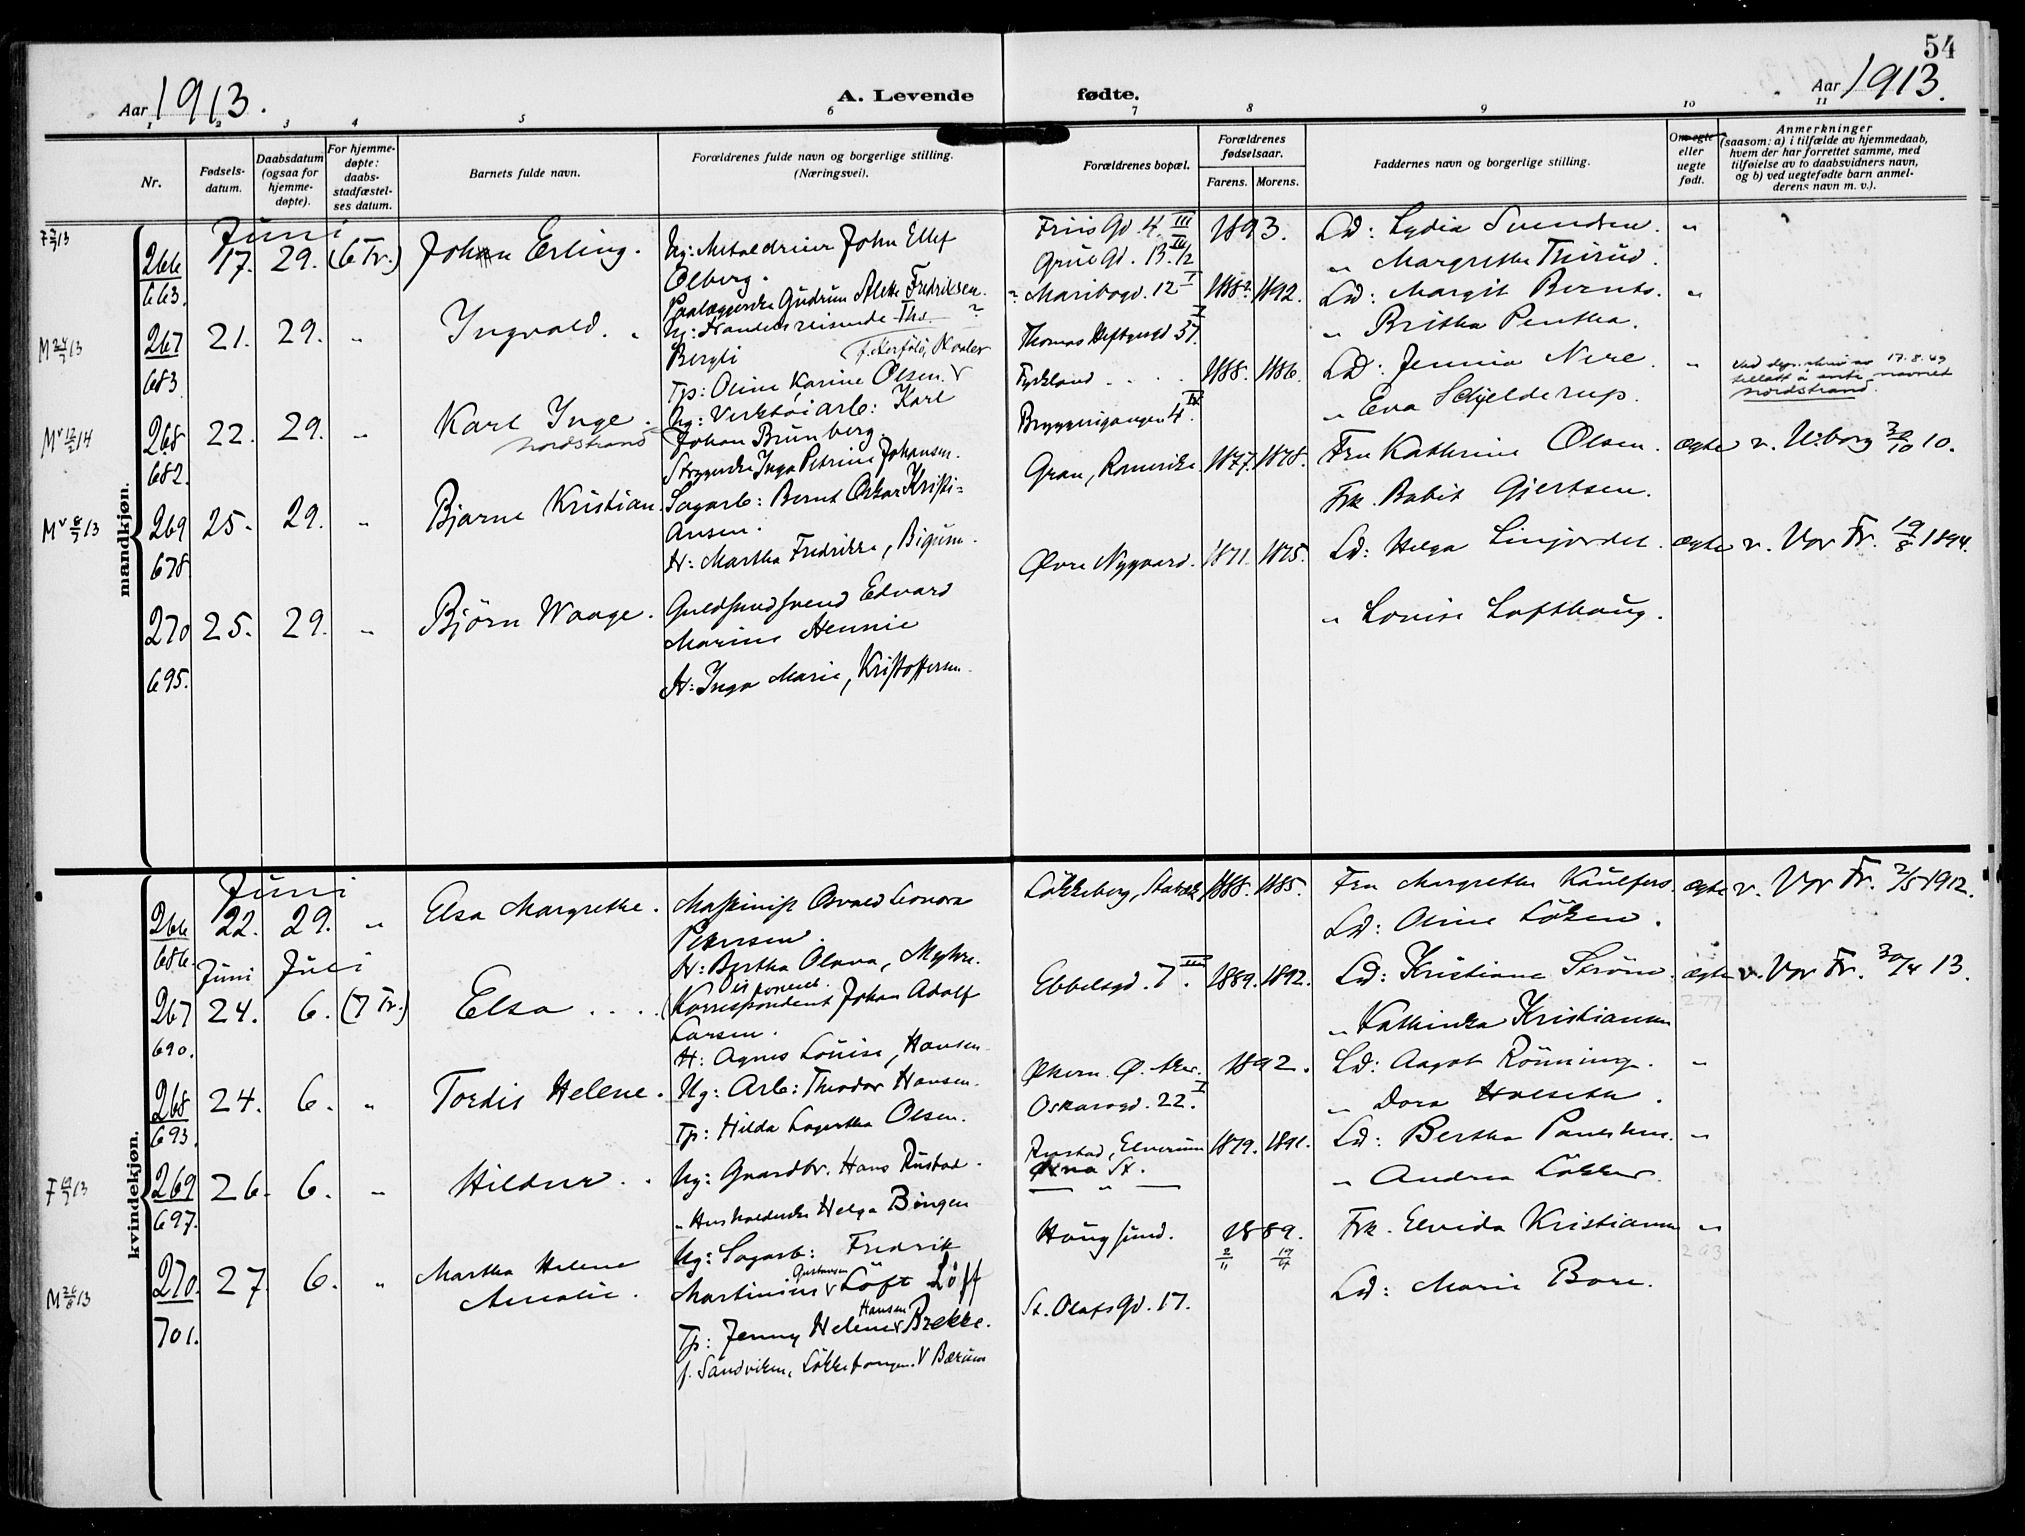 54
Aar 1913.
A. Levende
fødte.
Aar 1913.
1 2 3 4 5 6 7 8 9 10 11
Nr.
Fødsels-
datum.
Daabsdatum
(ogsaa for
hjemme-
døpte).
For hjemme-
døpte:
daabs-
stadfæstel-
ses datum.
Barnets fulde navn.
Forældrenes fulde navn og borgerlige stilling.
(Næringsvei).
Forældrenes bopæl.
Forældrenes
fødselsaar.
Farens. Morens.
Faddernes navn og borgerlige stilling.
Om egte
eller
uegte
født.
Anmerkninger
(saasom: a) i tilfælde av hjemmedaab,
hvem der har forrettet samme, med
tilføielse av to daabsvidners navn,
og b) ved uegtefødte barn anmel-
derens navn m. v.).
mandkjøn.
Juni
266
663.
17. 29. (6 Tr.) Johan Erling.
Ug: Metaldreier John Ellef
Ølberg.
Paalæggerske Gudrun Alette Fredriksen.
Friis Gd. 4 III
Grüe Gd. 13. IV/2
1893.
Ld: Lydia Svendsen. "
" Margrethe Thirud.
267
683.
21. 29. " Ingvald.
Ug: Handelsreisende Ths.
Bergli
Tp: Oline Karine Olsen.
Maribogd. 12 I
Thomas Heftyesgd 37. I
1882 1892.
Ld: Margit Bernts. "
" Britha Pentha.
268
682.
22. 29. " Karl Inge.
Nordstrand
Ug: Verktøiarb: Karl
Johan Brünberg.
Strygerske Inga Petrine Johansen.
Tyskland
Bryggerigangen 4 IV
1888. 1886.
Ld: Jennie Nere. "
" Eva Schjelderup.
17.8.49
navnet
Nordstrand.
269
678.
25. 29. " Bjarne Kristian.
Sagarb: Bernt Oskar Kristi=
ansen.
H: Martha Fredrikke, Bigum.
Gran, Romerike. 1877. 1878.
Fru Kathrine Olsen. ægte v. Uborg 30/10 10.
Frk. Babit Gjertsen.
270
695.
25. 29. " Bjørn Waage.
Guldsmedsvend Edvard
Marius Hennie
H: Inga Marie, Kristoffersen.
Øvre Nygaard. 1871. 1875.
Ld: Helga Linjordet. ægte v. Vor Fr. 19/8 1894.
" Louise Lofthaug.
kvindekjøn.
Juni
266
686.
22. 29. " Elsa Margrethe.
Maskinist Osvald Leonard
Petersen.
H: Bertha Olava, Myhre.
Løkkeberg, Stabæk 1888. 1885.
Fru Margrethe Kaulfers. ægte v. Vor Fr. 2/5 1912.
Ld: Oline Løken.
Juni Juli
267
690.
24. 6. (7 Tr.) Elsa
Korrespondent Johan Adolf
Larsen.
H: Agnes Louise, Hansen.
Ebbelsgd. 7. III 1889. 1892.
Ld: Kristiane Strøm. ægte v. Vor Fr. 30/4 13.
" Kathinka Kristiansen
268
693.
24. 6. " Tordis Helene.
Ug: Arb: Theodor Hansen.
Tp: Hilda Lagertha Olsen.
Økern. Ø. Aker. 1892.
Oskarsgd. 22. I
Ld: Aagot Rønning. "
" Dora Holseth.
269
697.
26. 6. " Hildur.
Ug: Gaardbr. Hans Rustad.
" Husholderske Helga Bingen
Rustad, Elverum 1879. 1891.
Ld: Bertha Paulsen. "
" Andrea Løkker.
270.
701.
27. 6. " Martha Helene
Amalie.
Ug: Sagarb: Fredrik
Martinius Gustavsen Löft Löff
Tp: Jenny Helene Hansen Brekke.
f. Sandviken, Løkketangen. V Bærum
Haugsund. 1889.
St. Olafs Gd. 17.
Frk. Elvida Kristiansen "
Ld: Marie Bore.